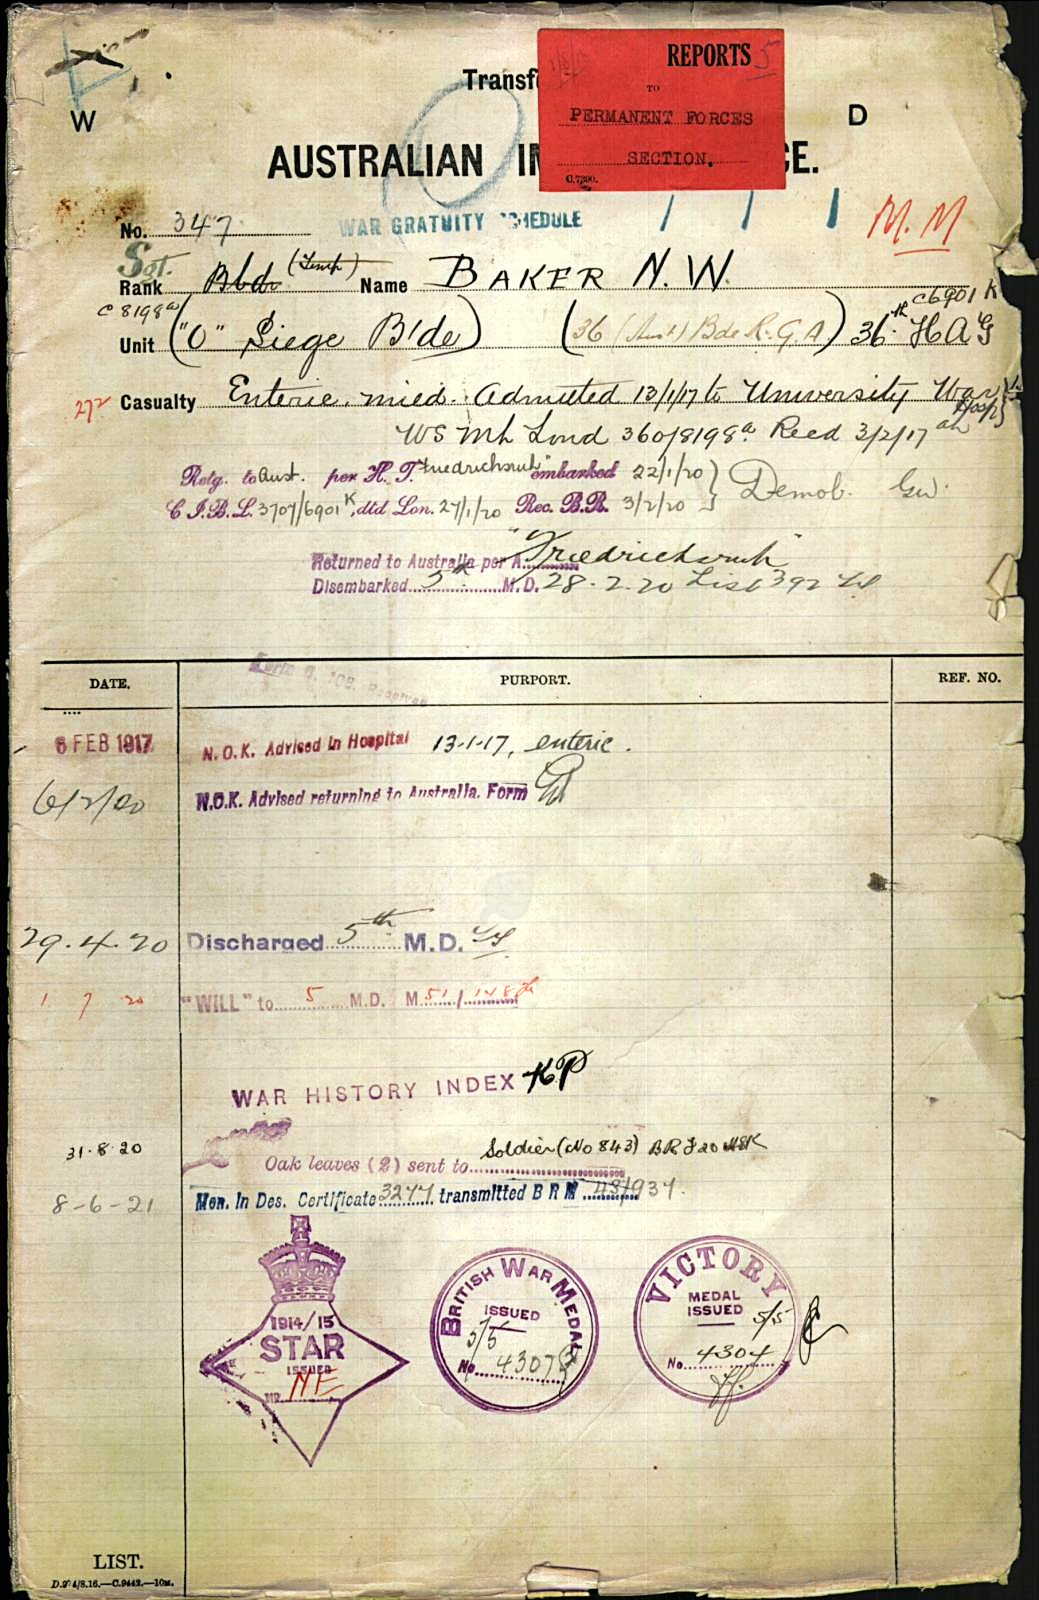 REPORTS 5
TO
PERMANENT FORCES
SECTION.
C.7390.
Transf
W D
AUSTRALIAN I CE.
No. 347 WAR GRATUITY SCHEDULE
M.M
Sgt.
Rank Bbdr (Temp) Name BAKER N. W.
C 8198a C6901 K
Unit ("O" Siege B'de) (36 (Aust) Bde R.G.A) 36th H A G
272 Casualty Enteric, mild. Admitted 13/1/17 to University War Hosp
WS Mh Lond 360/8198a Recd 3/2/17
Retg. to Aust. per H. T. "Friedrichsruh" embarked 22/1/20
C.I.B.L. 3707/6901K, dtd Lon. 27/1/20 Rec. B.R. 3/2/20 Demob.
Returned to Australia per A "Friedrichsruh"
Disembarked 5th M.D. 28.2.20 List 392
DATE. PURPORT. REF. NO.
6 FEB 1917 N.O.K. Advised in Hospital 13-1-17, enteric.
6/2/20 N.O.K. Advised returning to Australia. Form
29.4.20 Discharged 5th M.D.
1 7 20 "WILL" to 5 M.D. M 51/148
WAR HISTORY INDEX KP
31.8.20 Oak leaves (2) sent to Soldier (No 843) BR 120
8-6-21 Men. in Des. Certificate 3277 transmitted B R M 43/937.
1914/15
STAR
ISSUED
NR. NE
BRITISH WAR MEDAL
ISSUED
5/5
No. 4307
VICTORY
MEDAL
ISSUED 5/5
No. 4304
LIST.
D.9 4/8.16.—C.9442.—10m.